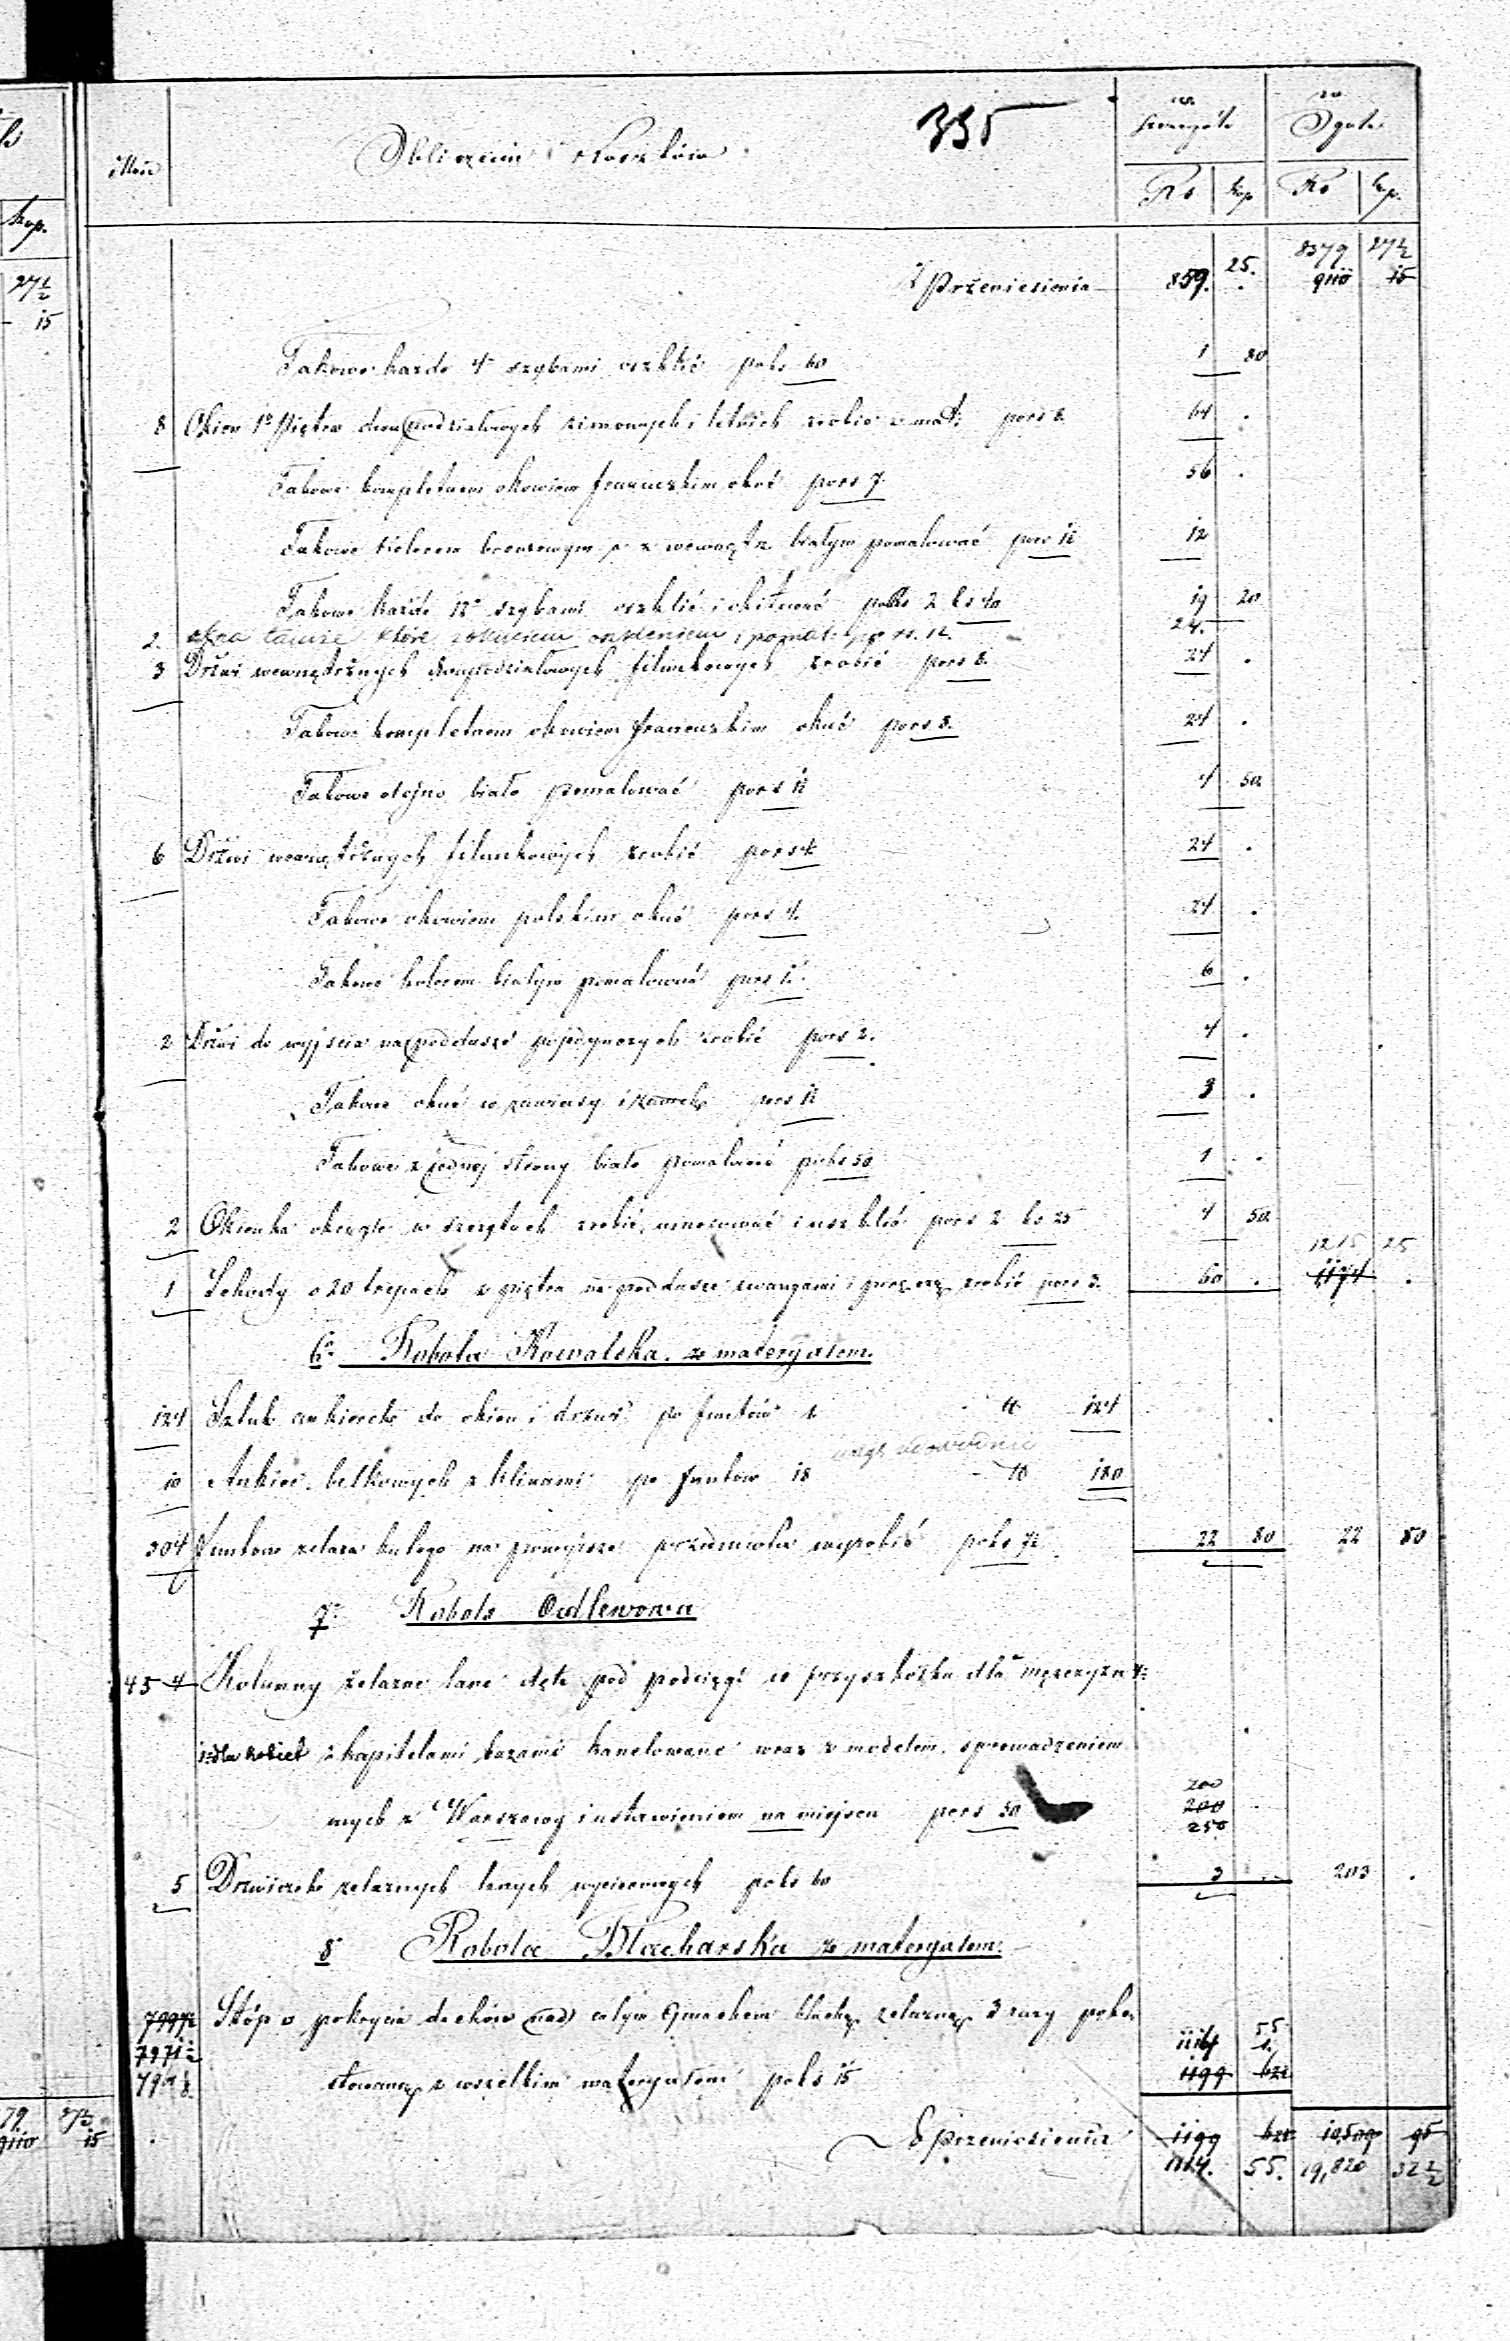 335
Ilość Obliczenie Kosztów w szczególe w Ogóle
Rs kop Rs kop.
Z Przeniesienia 859. 25. 8379 27½
9110 15
Takowe każde 4 szybami oszklić po ks 60 1 80
8 Okien 1o Piętra dwupodziałowych zimowych i letnich zrobić z mat: po rs 8 64 .
Takowe kompletnem okowiem francuzkim okuć po rs 7. 56 .
Takowe kolorem bronzowym a z wewnątrz białym pomalować po rs 1½ 12
Takowe każde 12 szybami oszklić i okitować po rs 2 ks 40 19 20
2. okna takież które z okuciem oszkleniem i pomal. po rs. 12. 24.
3 Drzwi wewnętrznych dwupodziałowych filunkowych zrobić po rs 8. 24 .
Takowe kompletnem okowiem francuzkim okuć po rs 8. 24 .
Takowe olejno biało pomalować po rs 1½ 4 50
6 Drzwi wewnętrznych filunkowych zrobić po rs 4 24 .
Takowe okowiem polskim okuć po rs 4. 24 .
Takowe kolorem białym pomalować po rs 1. 6 .
2 Drzwi do wyjścia na poddasze pojedynczych zrobić po rs 2. 4 .
Takowe okuć w zawiasy i zamek po rs 1½ 3 .
Takowe z jednej strony biało pomalować po ks 50 1 .
2 Okienka okrągłe w szczytach zrobić, umocować i oszklić po rs 2 ks 25 4 50
1215 25
1 Schody o 20 stopach z piętra na poddasze z wangami i poręczą zrobić po rs 3. 60 . 1191 .
6o Robota Kowalska. z materyałem.
124 Sztuk ankierek do okien i drzwi po funtów 1 124
10 Ankier belkowych z klinami po funtów 18 180
304 Funtów żelaza kutego na powyższe przedmioty wyrobić po ks 7½ 22 80 22 80
7o Robota Odlewowa
4 5 4 Kolumny żelazne lane dęte pod podciągi w przysionku dla mężczyzn 4:
i: dla kobiet z kapitelami bazami kanelowane wraz z modelem, sprowadzeniem
200
onych z Warszawy i ustawieniem na miejscu po rs 50 200
250
5 Drzwiczek żelaznych lanych wyciorowych po ks 60 3 . 203 .
8 Robota Blacharska z materyałem.
Stóp □ pokrycia dachów nad całym Gmachem blachą żelazną 3 razy poko
7971½
stowaną z wszelkim materyałem po ks 15 1199 62½
Do Przeniesienia 1199 62½ 10,509 95
55. 19,820 32½